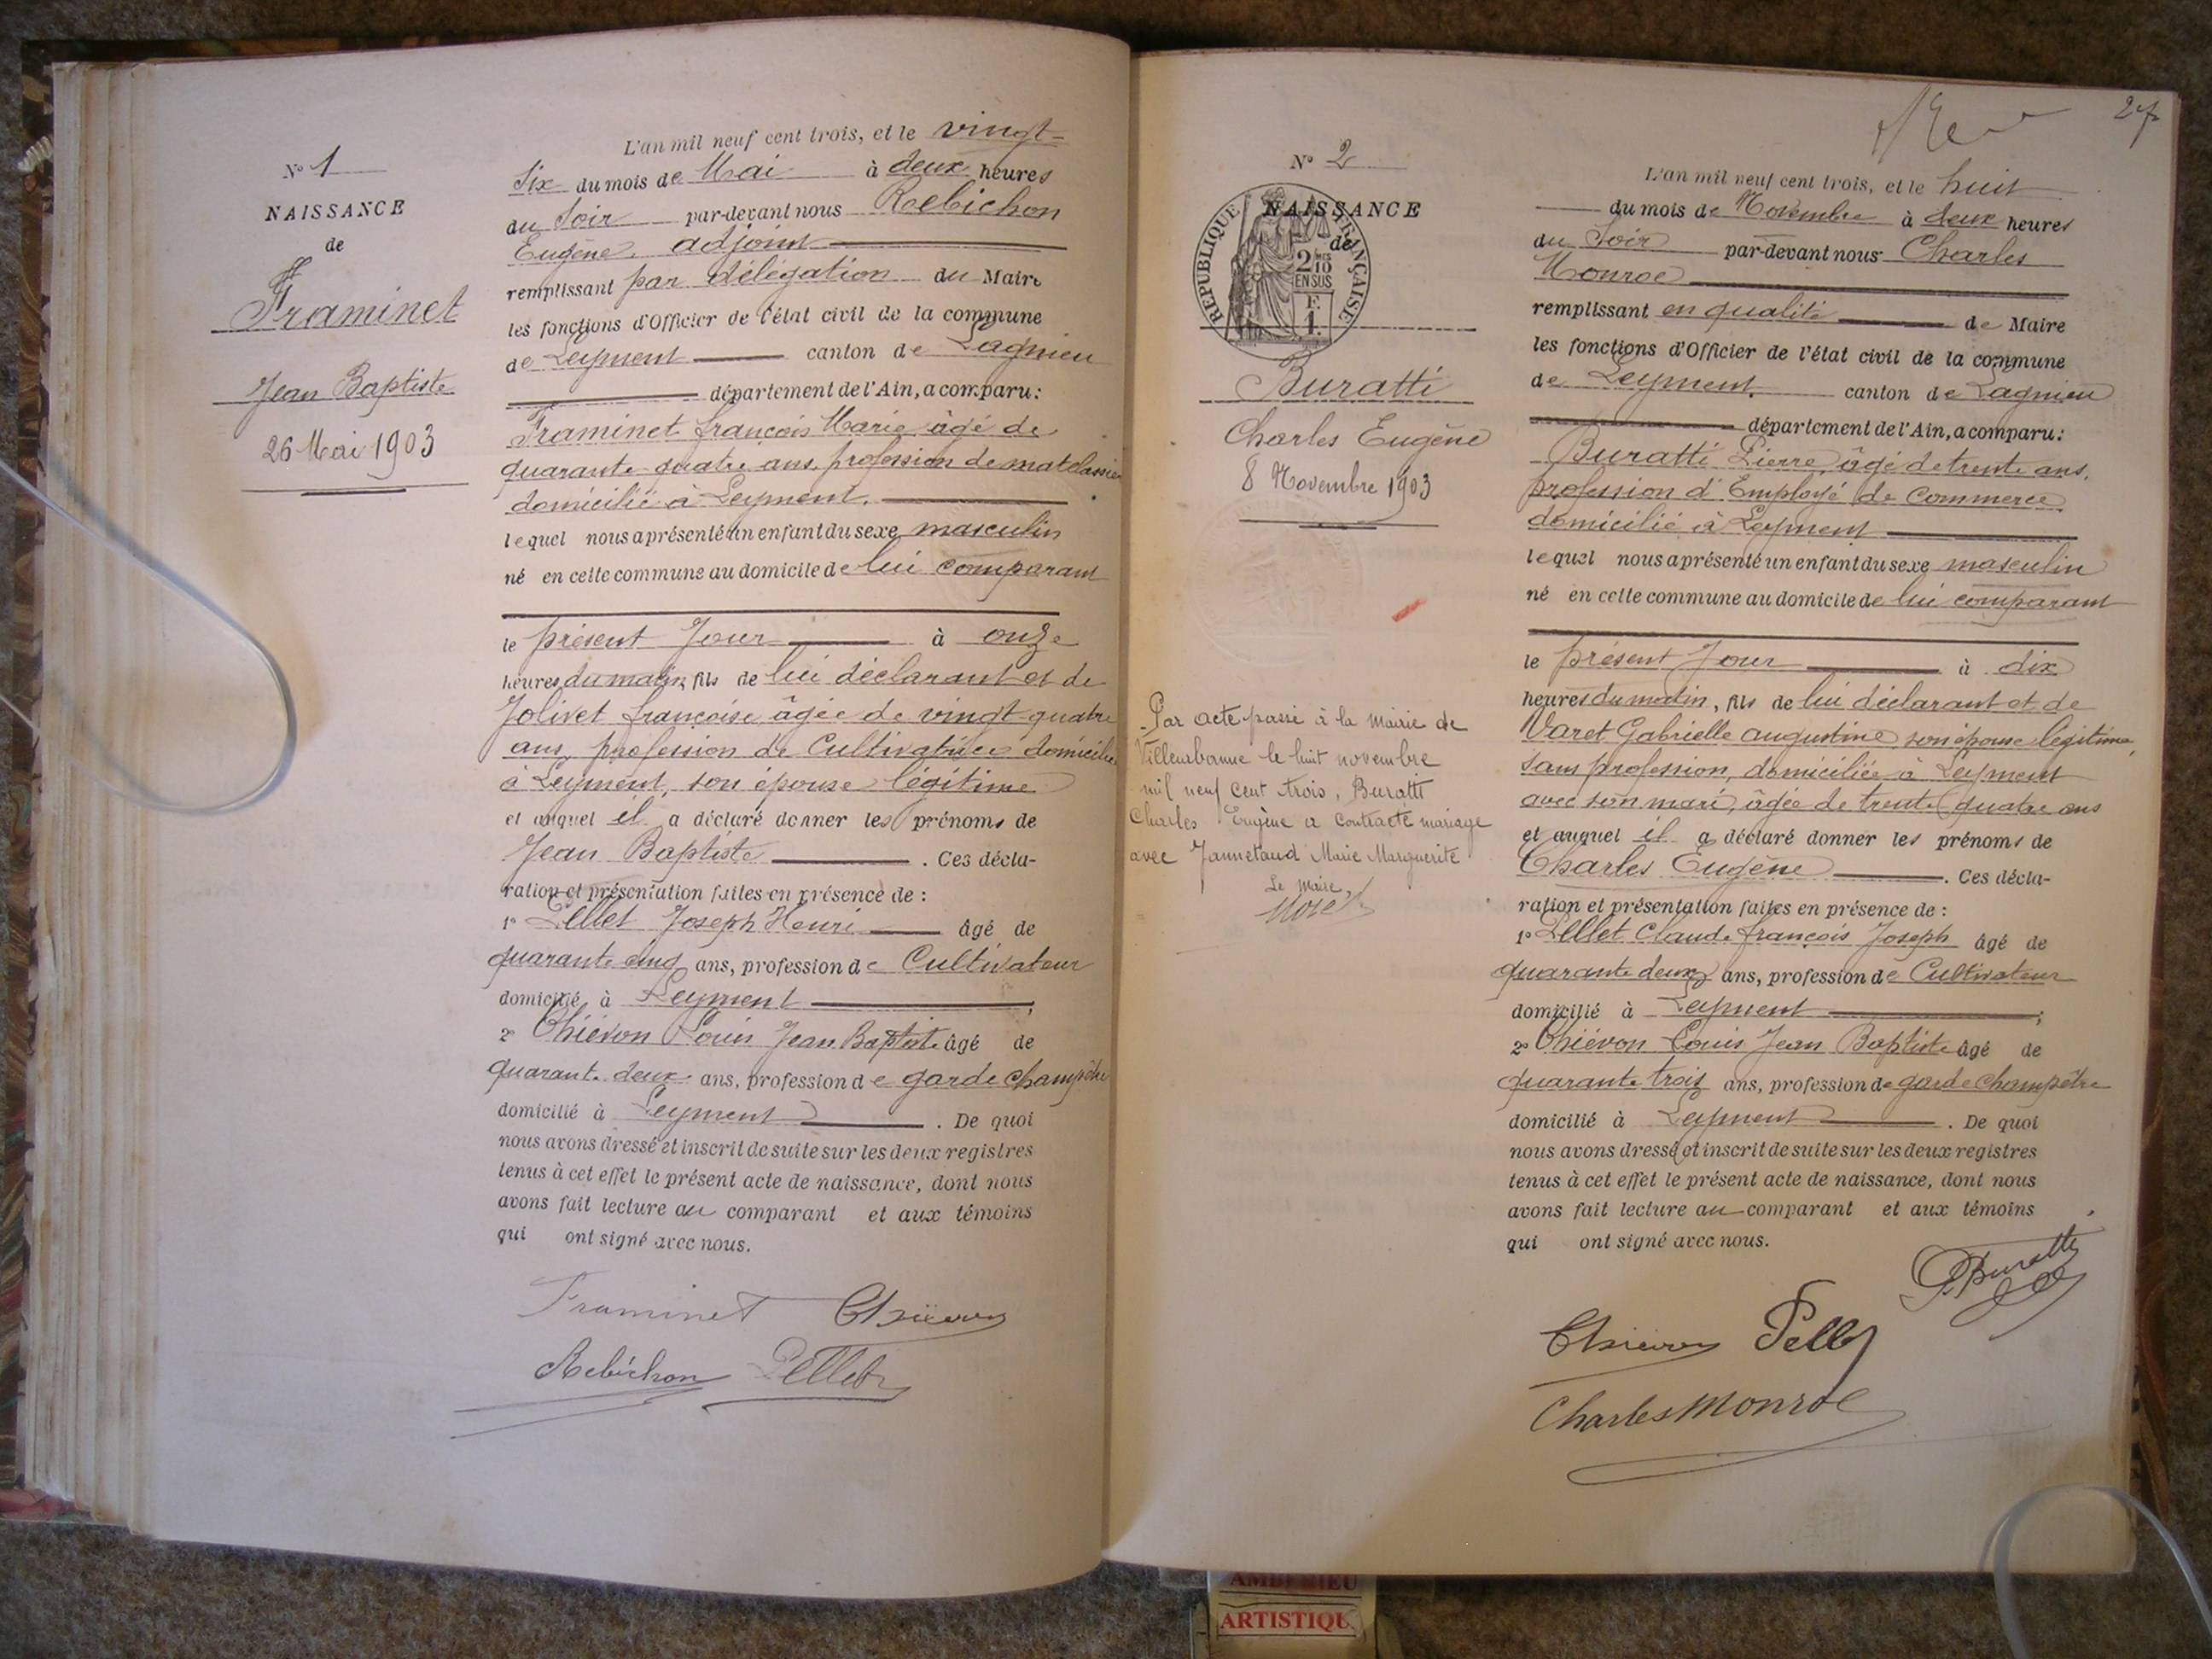 N° 1
NAISSANCE
de
Framinet
Jean Baptiste
26 Mai 1903
L'an mil neuf cent trois, et le vingt-
six du mois de Mai à deux heures
du Soir par-devant nous Rebichon
Eugène, adjoint
remplissant par délégation du Maire
les fonctions d'Officier de l'état civil de la commune
de Leyment canton de Lagnieu
département de l'Ain, a comparu:
Framinet françois Marie âgé de
quarante-quatre ans, profession de matelassier
domicilié à Leyment.
lequel nous a présenté un enfant du sexe masculin
né en cette commune au domicile de lui comparant
le présent Jour à onze
heures du matin, fils de lui déclarant et de
Jolivet françoise âgée de vingt quatre
ans, profession de Cultivatrice domiciliée
à Leyment, son épouse légitime
et auquel il a déclaré donner les prénoms de
Jean Baptiste. Ces décla-
ration et présentation faites en présence de :
1° Pellet Joseph Henri âgé de
quarante cinq ans, profession de Cultivateur
domicilié à Leyment ;
2° Thiévon Louis Jean Baptiste âgé de
quarante deux ans, profession de garde champêtre
domicilié à Leyment. De quoi
nous avons dressé et inscrit de suite sur les deux registres
tenus à cet effet le présent acte de naissance, dont nous
avons fait lecture au comparant et aux témoins
qui ont signé avec nous.
Framinet Thiévon
Rebichon Pellet
27
N° 2
NAISSANCE
de
REPUBLIQUE FRANÇAISE
2/10
EN SUS
F.
1.
Buratti
Charles Eugène
8 Novembre 1903
Par acte passé à la mairie de
Villeurbanne le huit novembre
mil neuf cent trois, Buratti
Charles Eugène a contracté mariage
avec Jannetaud Marie Marguerite
Le Maire,
L'an mil neuf cent trois, et le huit
du mois de Novembre à deux heures
du Soir par-devant nous Charles
Monroe
remplissant en qualité de Maire
les fonctions d'Officier de l'état civil de la commune
de Leyment. canton de Lagnieu
département de l'Ain, a comparu:
Buratti Pierre, âgé de trente ans,
profession d'Employé de Commerce
domicilié à Leyment
lequel nous a présenté un enfant du sexe masculin
né en cette commune au domicile de lui comparant
le présent Jour à dix
heures du matin, fils de lui déclarant et de
Varet Gabrielle augustine, son épouse légitime,
sans profession, domiciliée à Leyment
avec son mari, âgée de trente quatre ans
et auquel il a déclaré donner les prénoms de
Charles Eugène. Ces décla-
ration et présentation faites en présence de :
1° Pellet Claude françois Joseph âgé de
quarante deux ans, profession de Cultivateur
domicilié à Leyment ;
2° Thiévon Louis Jean Baptiste âgé de
quarante trois ans, profession de garde champêtre
domicilié à Leyment. De quoi
nous avons dressé et inscrit de suite sur les deux registres
tenus à cet effet le présent acte de naissance, dont nous
avons fait lecture au comparant et aux témoins
qui ont signé avec nous.
P. Buratti
Thiévon Pellet
Charles Monroe
ARTISTIQU